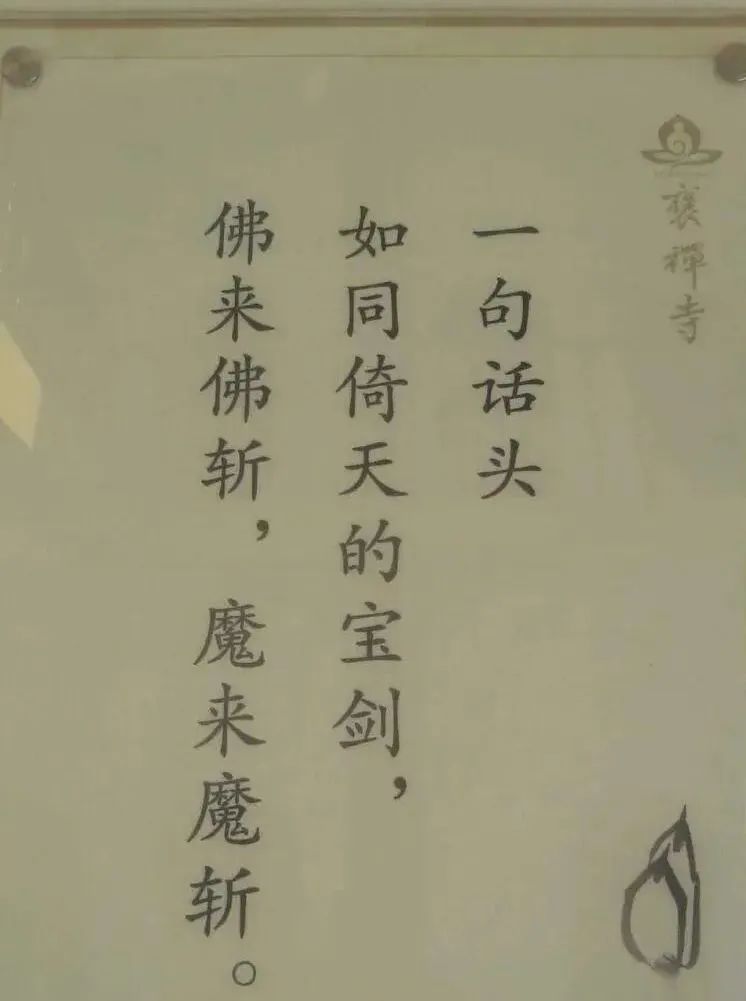 褒禪寺
一句话头
如同倚天的宝剑，
佛来佛斩，魔来魔斩。